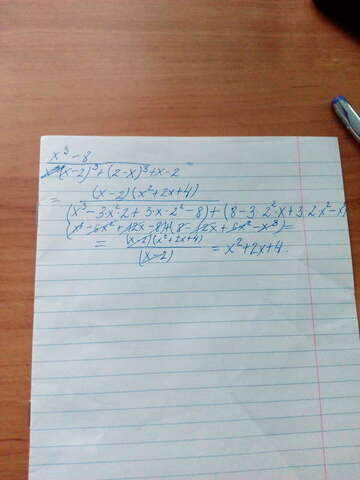 x³ - 8
(x-2)³ + (2-x)³ + x - 2 =
= (x-2)(x²+2x+4)
(x³ - 3·x²·2 + 3·x·2² - 8) + (8 - 3·2²·x + 3·2x² - x
(x³ - 6x² + 12x - 8) + (8 - 12x + 6x² - x³) =
= (x-2)(x²+2x+4) / (x-2) = x² + 2x + 4.